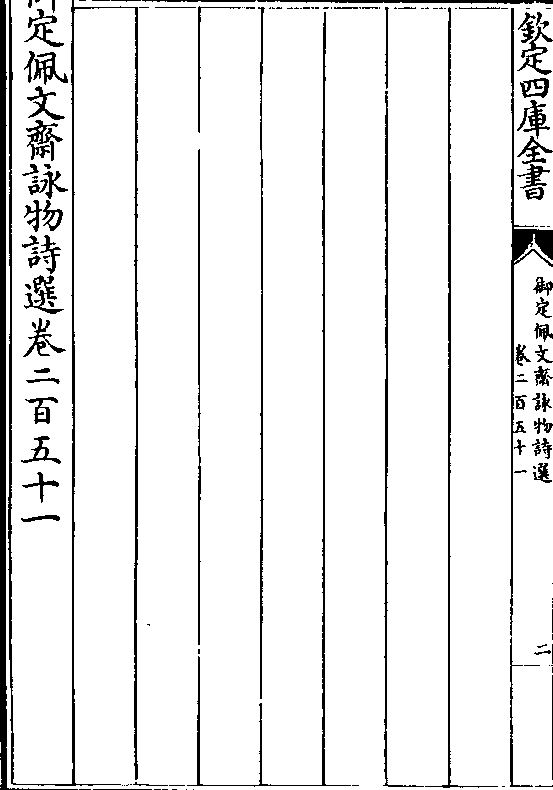 欽定四庫全書
御定佩文齋詠物詩選
卷二百五十一
二
御定佩文齋詠物詩選卷二百五十一